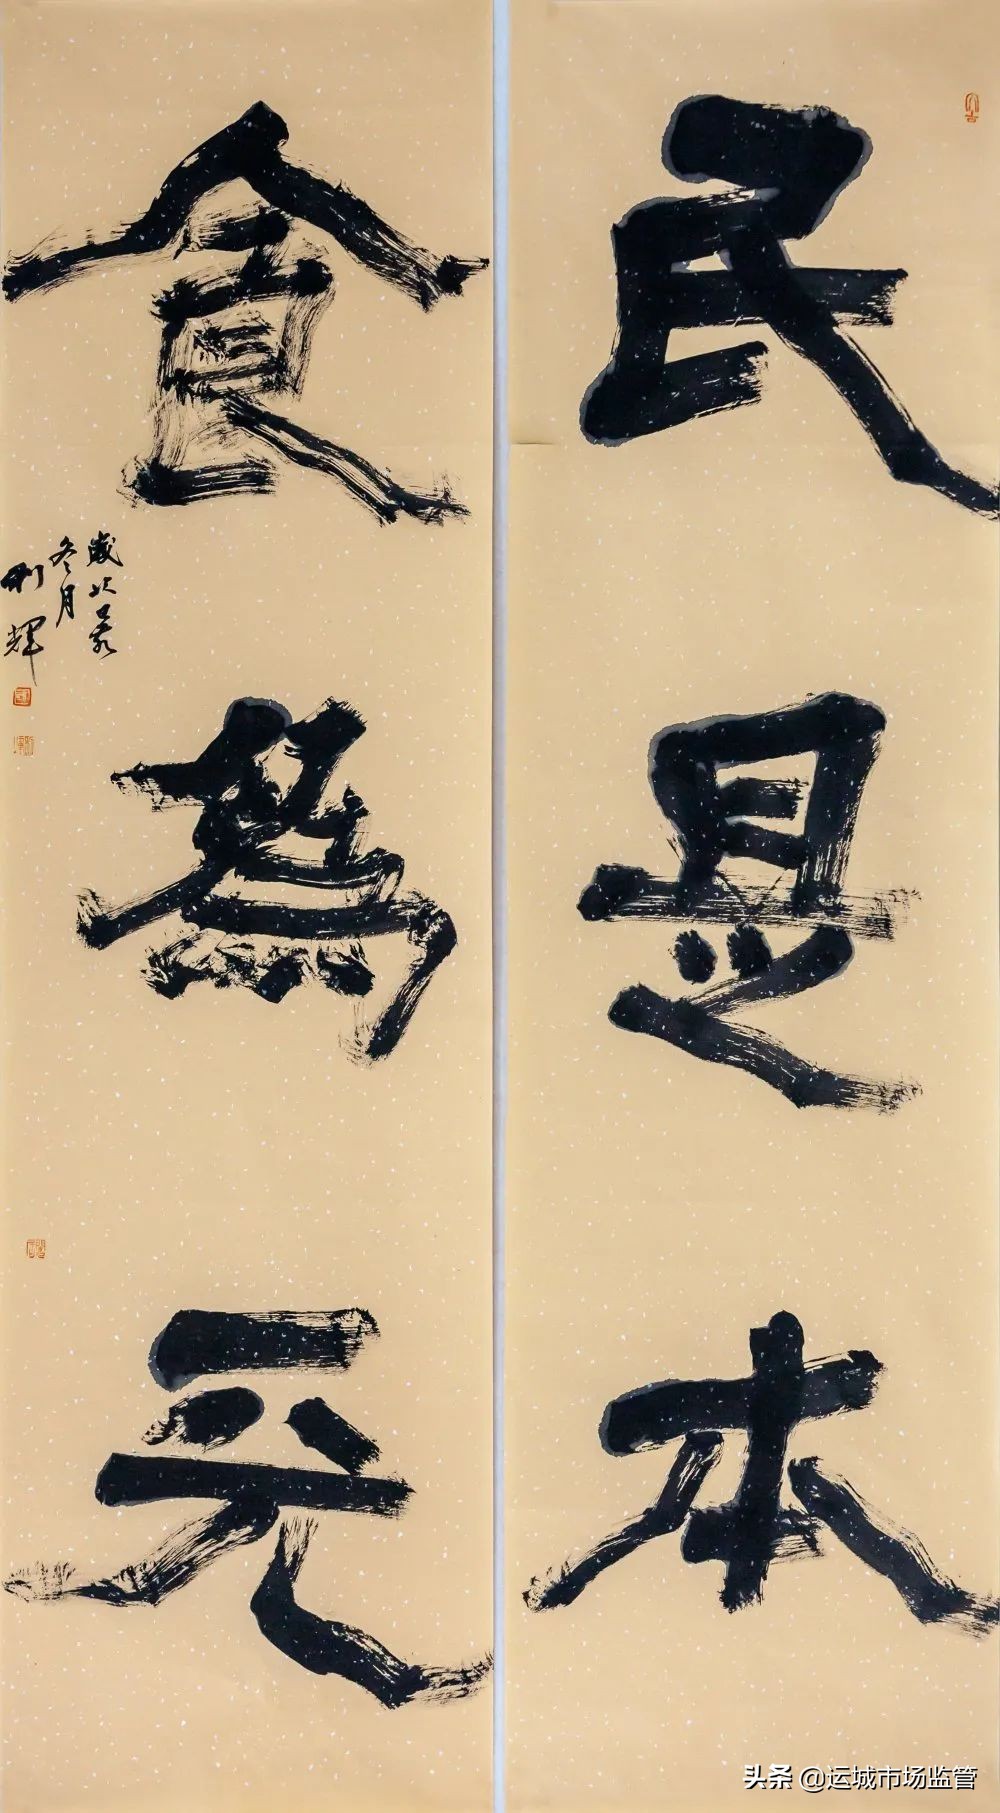 民是本
食為天
歲次
冬月
輝
头条 @运城市场监管